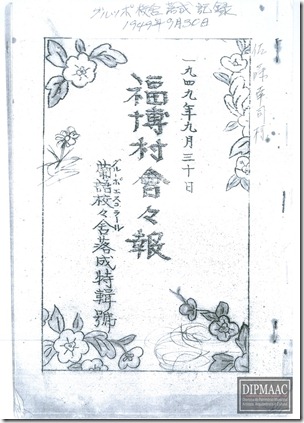 グルッポ校舎落成記録
1949年9月30日
一九四九年九月三十日
福博村會々報
グルーポエスコラール
葡語校々舎落成特輯號
DIPMAAC